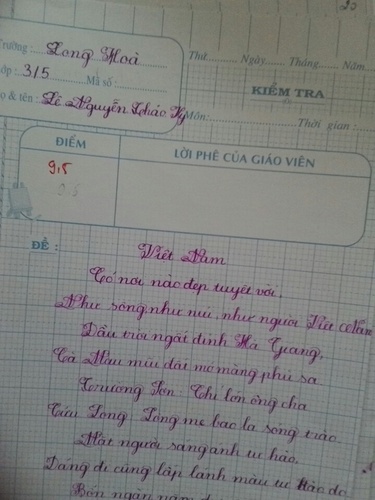 20
Trường: Long Hoà
Thứ: Ngày Tháng Năm
Lớp: 3/5 Mã số:
KIỂM TRA
Họ & tên: Lê Nguyễn Thảo Vy
Môn: Thời gian:
ĐIỂM
LỜI PHÊ CỦA GIÁO VIÊN
9,5
9.5
ĐỀ:
Việt Nam
Có nơi nào đẹp tuyệt vời,
Như sông, như núi, như người Việt Nam
Đầu trời ngất đỉnh Hà Giang,
Cà Mau mũi đất mỡ màng phù sa
Trường Sơn: Chí lớn ông cha
Cửu Long: Lòng mẹ bao la sóng trào
Mặt người sáng ánh tự hào,
Dáng đi cũng lấp lánh màu tự hào do
Bốn ngàn năm